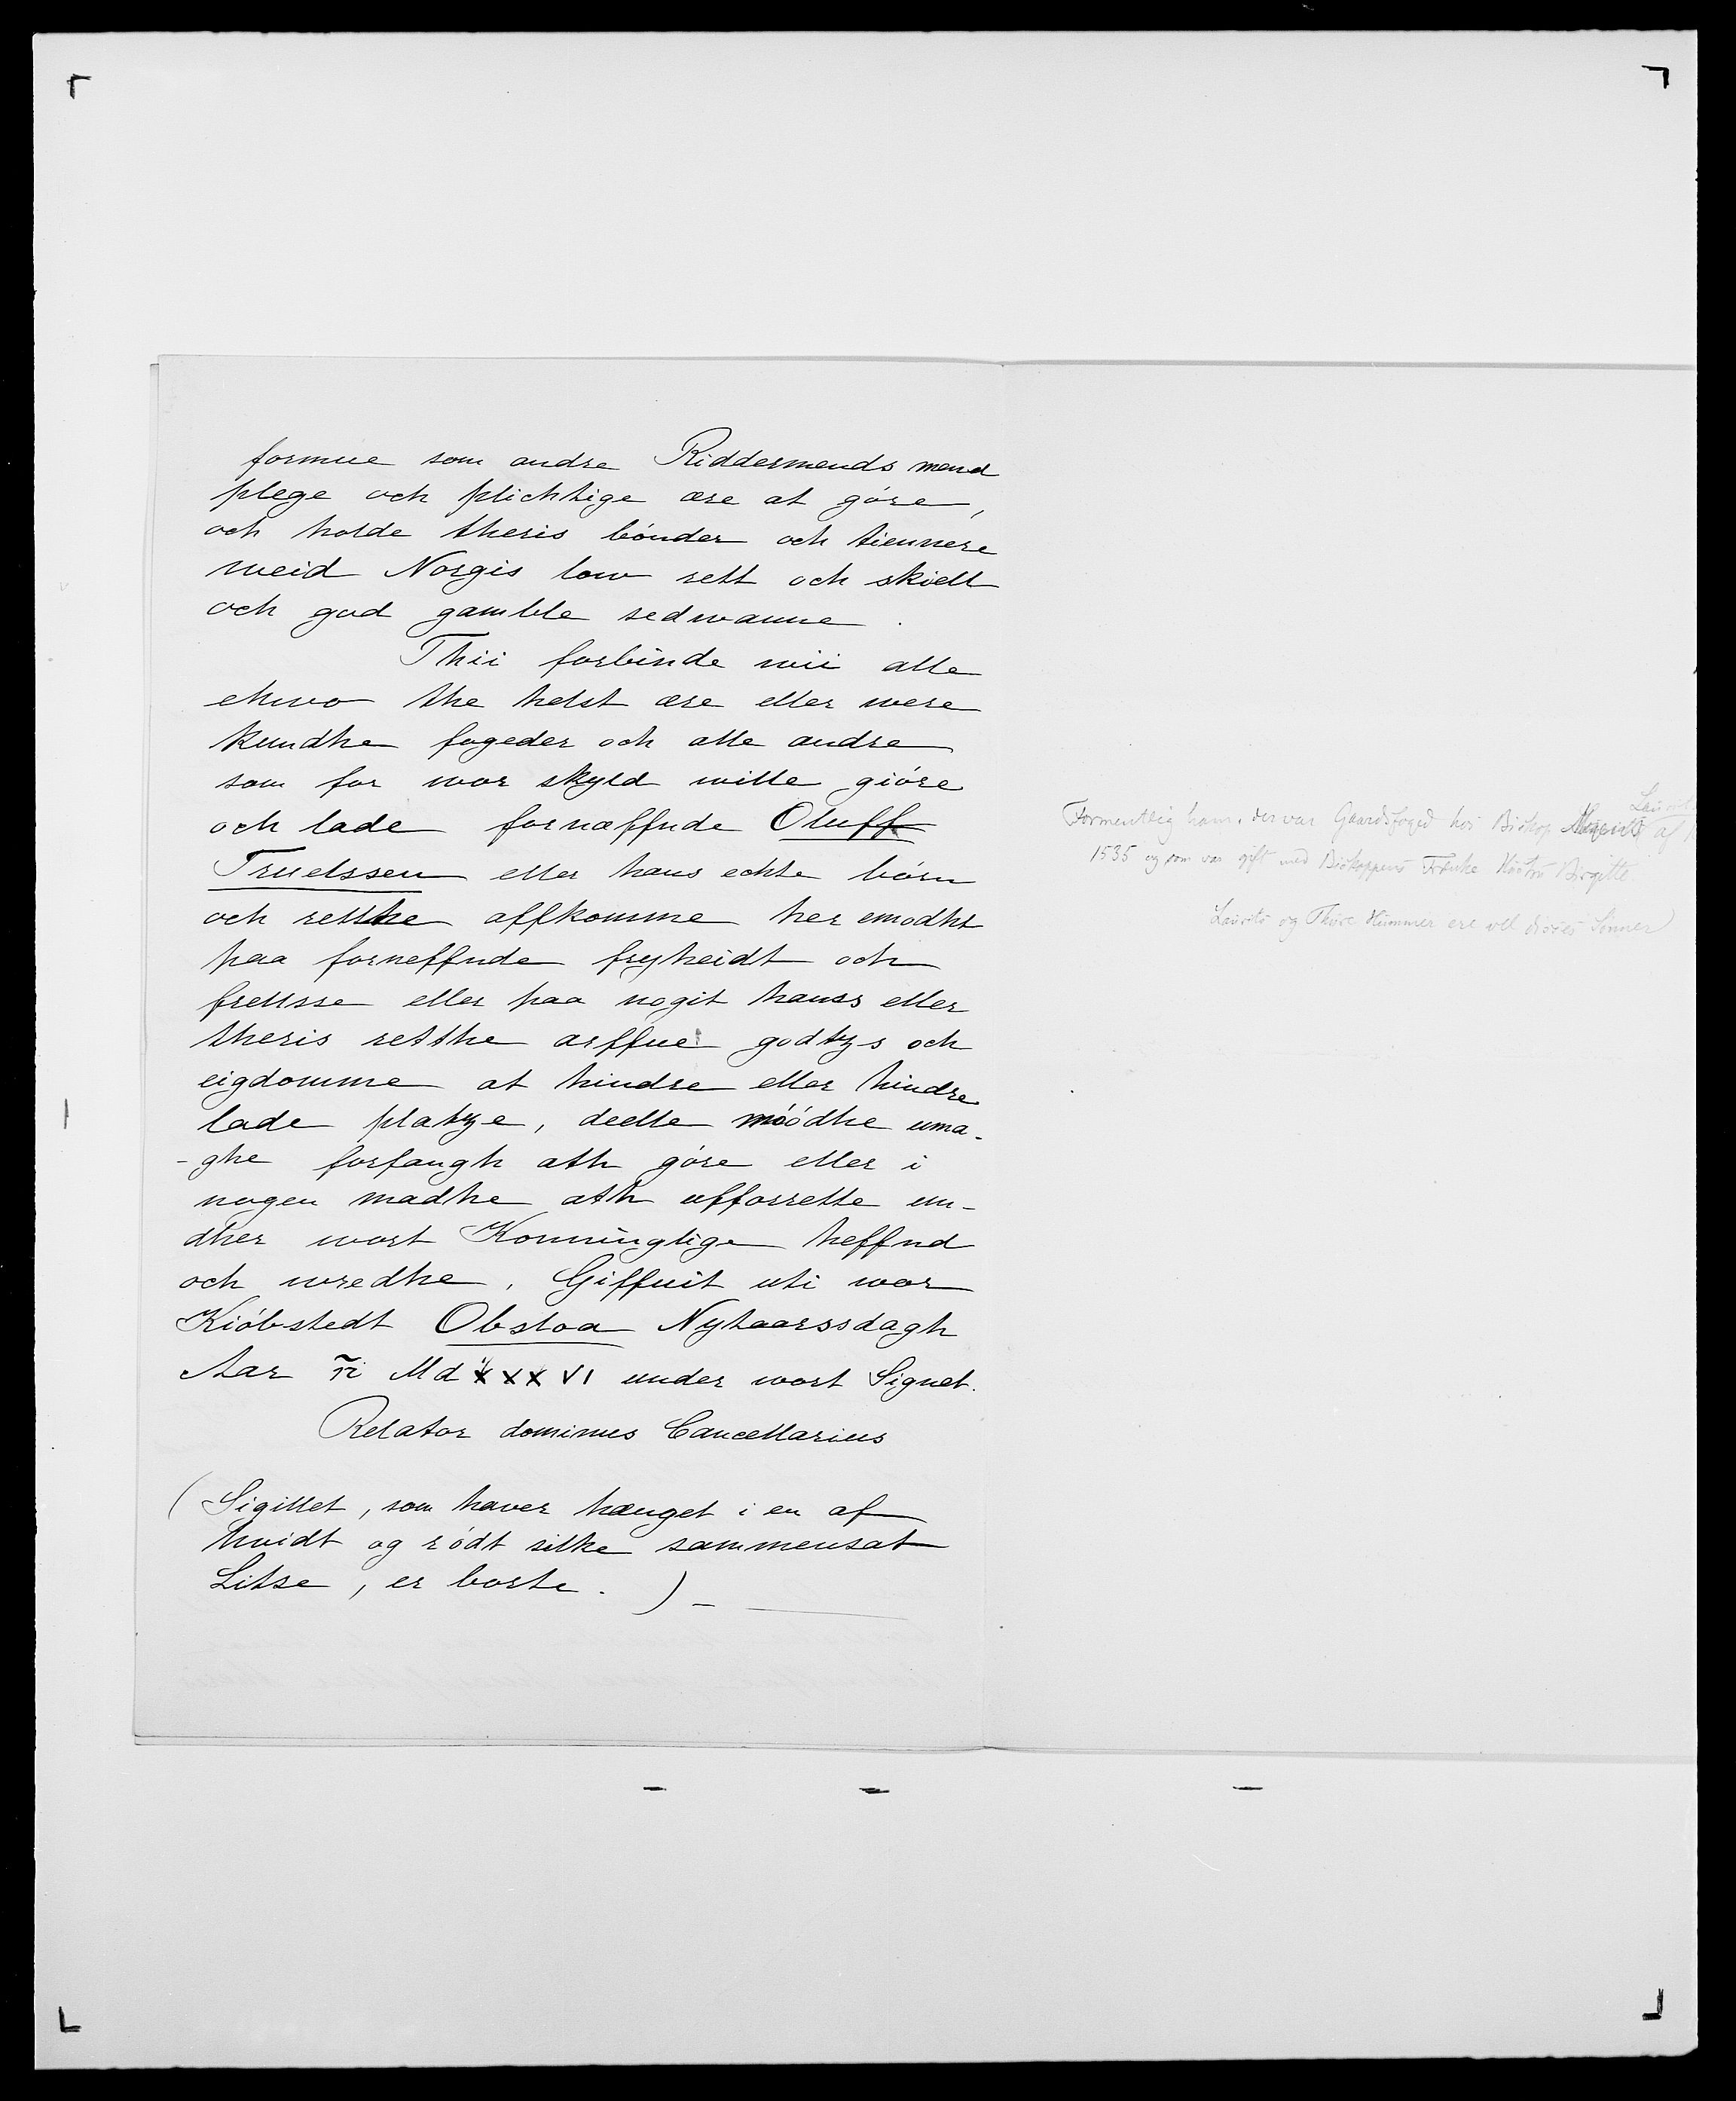 formue som andre Riddermends mend
plege och plichtige ære at góre,
och holde theris bónder och tiennere
meid Norgis low rett och skiell
och god gamble sedwanne.
Thii forbinde wii alle
ehwo the helst ære eller were
kundhe fogeder och alle andre
som for wor skyld wille gióre
och lade fornæffnde Oluff
Truelssen eller hans echte bórn
och retthe affkomme her emodht
paa forneffnde fryheidt och
frellsse eller paa nogit hanss eller
theris retthe arffue godtzs och
eigdomme at hindre eller hindre
lade platze, deelle móódhe uma-
-ghe forfangh ath góre eller i
nogen madhe ath ufforrette un-
dher wort Konninglige heffnd
och wredhe. Giffuit uti wor
Kióbstedt Obsloa Nyhaarssdagh
Aar Md xxxvi under wort Signet.
Relator dominus Cancellarius
(Sigillet, som haver hænget i en af
hvidt og ródt silke sammensat
Litse, er borte.) -
Formentlig ham, der var Gaardsfoged hos Biskop
1535 og som var gift med Biskoppens Frænke Birgitte.
Laurits og Thore Hummer ere vel disses Sønner)